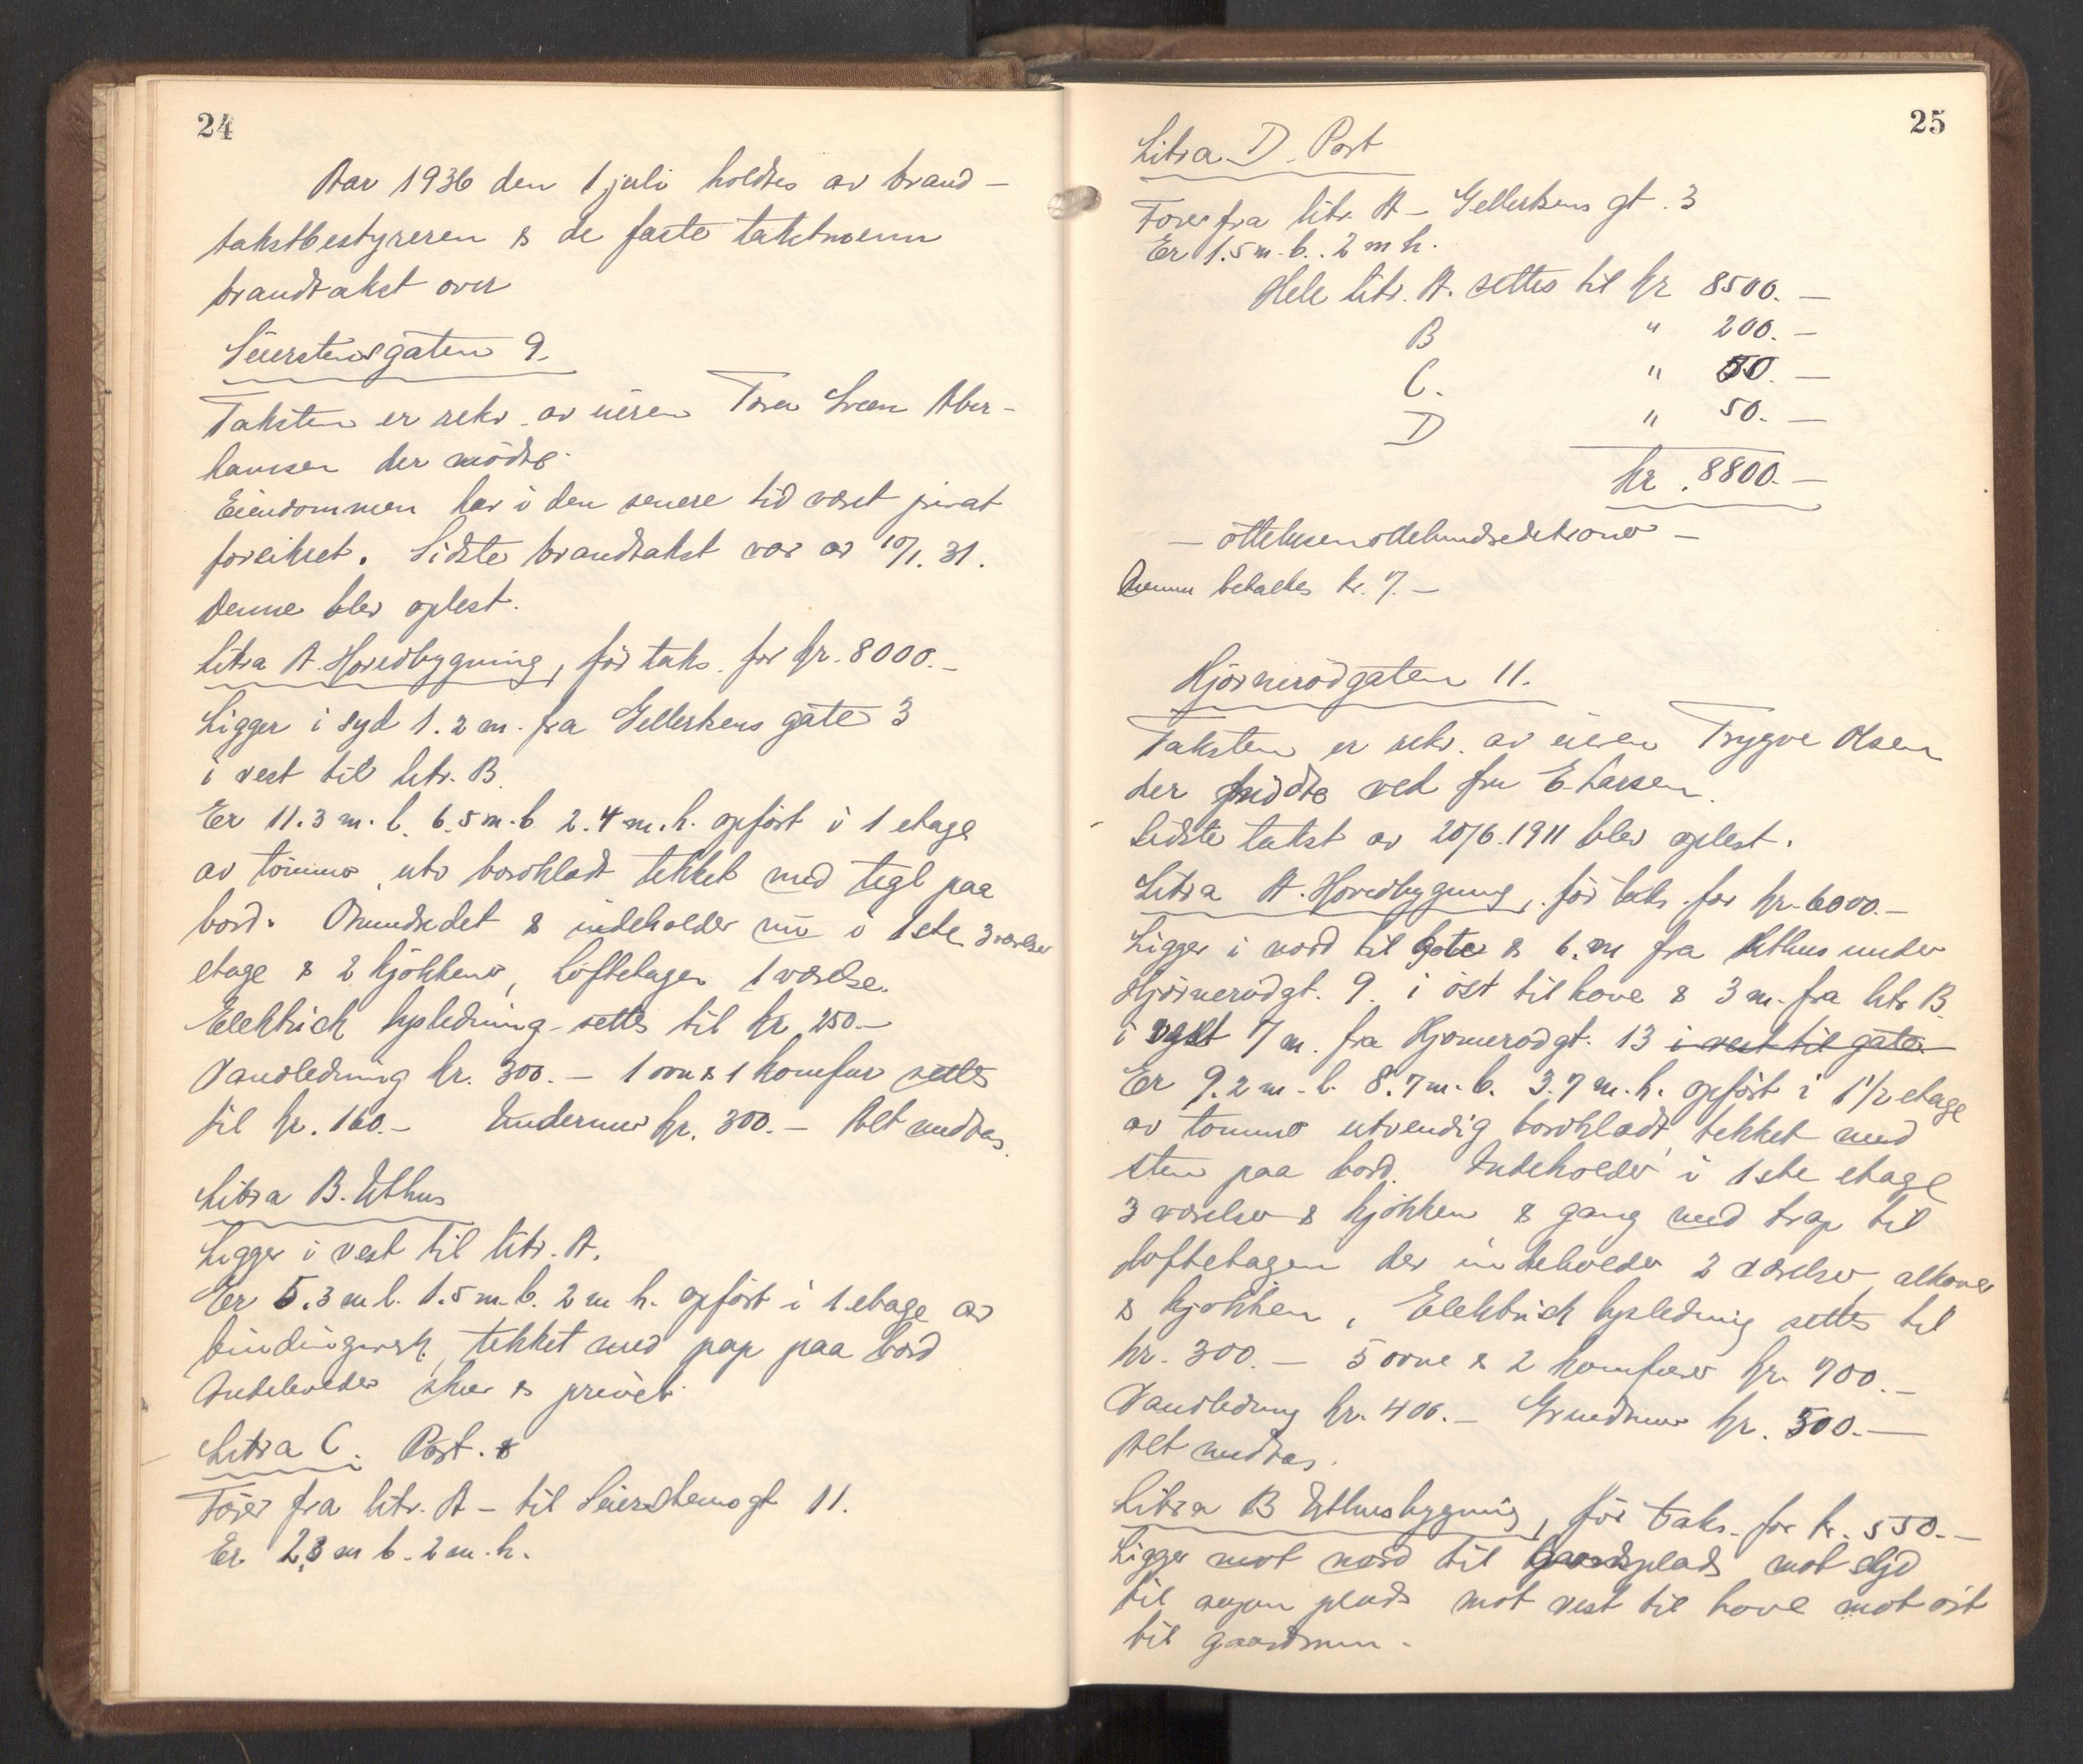 24
Aar 1936 den 1 juli holdtes av brand-
takstbestyreren & de faste takstmenn
brandtakst over
Seierstensgaten 9.
Taksten er rekv. av eieren Sveen Aber-
hamsen der mødte.
Eiendommen har i den senere tid været privat
foreikset. Sidste brandtakst var av 10/1. 31.
Denne blev oplest.
Litra A. Hovedbygning, før taks. for kr. 8000.-
Ligger i syd 1.2 m. fra Gellerksens gate 3
i vest til litr. B.
Er 11.3 m. l. 6.5 m. b 2.4 m. h. opført i 1 etage
av tømmer, utv bordklædt tekket med tegl paa
bord. & indeholder nu i 1ste 3 værelser
etage & 2 kjøkkener, Loftetagen 1 værelse.
Elektrisk lysledning settes til kr. 250.-
Vandledning kr. 300.- 1 ovn & 1 komfur settes
til kr. 160.- Undermur kr. 300.- Alt medtas.
Litra B. Uthus
Ligger i vest til litr. A.
Er 5.3 m l. 1.5 m. b. 2 m h. opført i 1 etage av
bindingverk, tekket med pap paa bord
Indeholder skur & privet.
Litra C. Port. &
Fører fra litr. A - til Seierstensgt 11.
Er 2.3 m b. 2 m. h.
25
Litra D. Port
Fører fra litr. A - Gellerksens gt. 3
Er 1.5 m. b. . 2 m h.
Hele litr. A. settes til kr 8500.-
B " 200.-
C. " 50.-
D " 50.-
kr. 8800.-
- ottetusenottehundredekroner -
Herunder betaltes kr. 7.-
Hjørnerødgaten 11.
Taksten er rekv. av eieren Trygve Olsen
der mødte ved fru E. Larsen.
Sidste takst av 20/6. 1911 blev oplest.
Litra A. Hovedbygning, før taks. for kr. 6000.-
Ligger i nord til gate & 6. m fra Uthus under
Hjørnerødgt. 9. i øst til have & 3 m. fra litr. B.
i syd 7 m. fra Hjørnerødgt. 13 i vest til gate.
Er 9.2 m. l. 8.7 m. b. 3.7 m. h. opført i 1 1/2 etage
av tømmer utvendig bordklædt, tekket med
sten paa bord. Indeholder i 1ste etage
3 værelser & kjøkken & gang med trap til
loftetagen der indeholder 2 værelser, alkover
& kjøkken, Elektrisk lysledning settes til
kr. 300.- 5 ovne & 2 komfurer kr. 700.-
Vandledning kr. 400.- Grundmur kr. 500.-
Alt medtas.
Litra B Uthusbygning, før taks. for kr. 550.-
Ligger mot nord til gaardsplads mot syd
til plads mot vest til have mot øst
til gaardsrum.